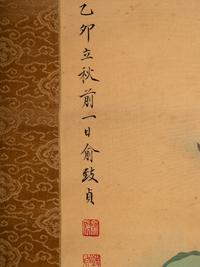 乙卯立秋前一日俞致贞